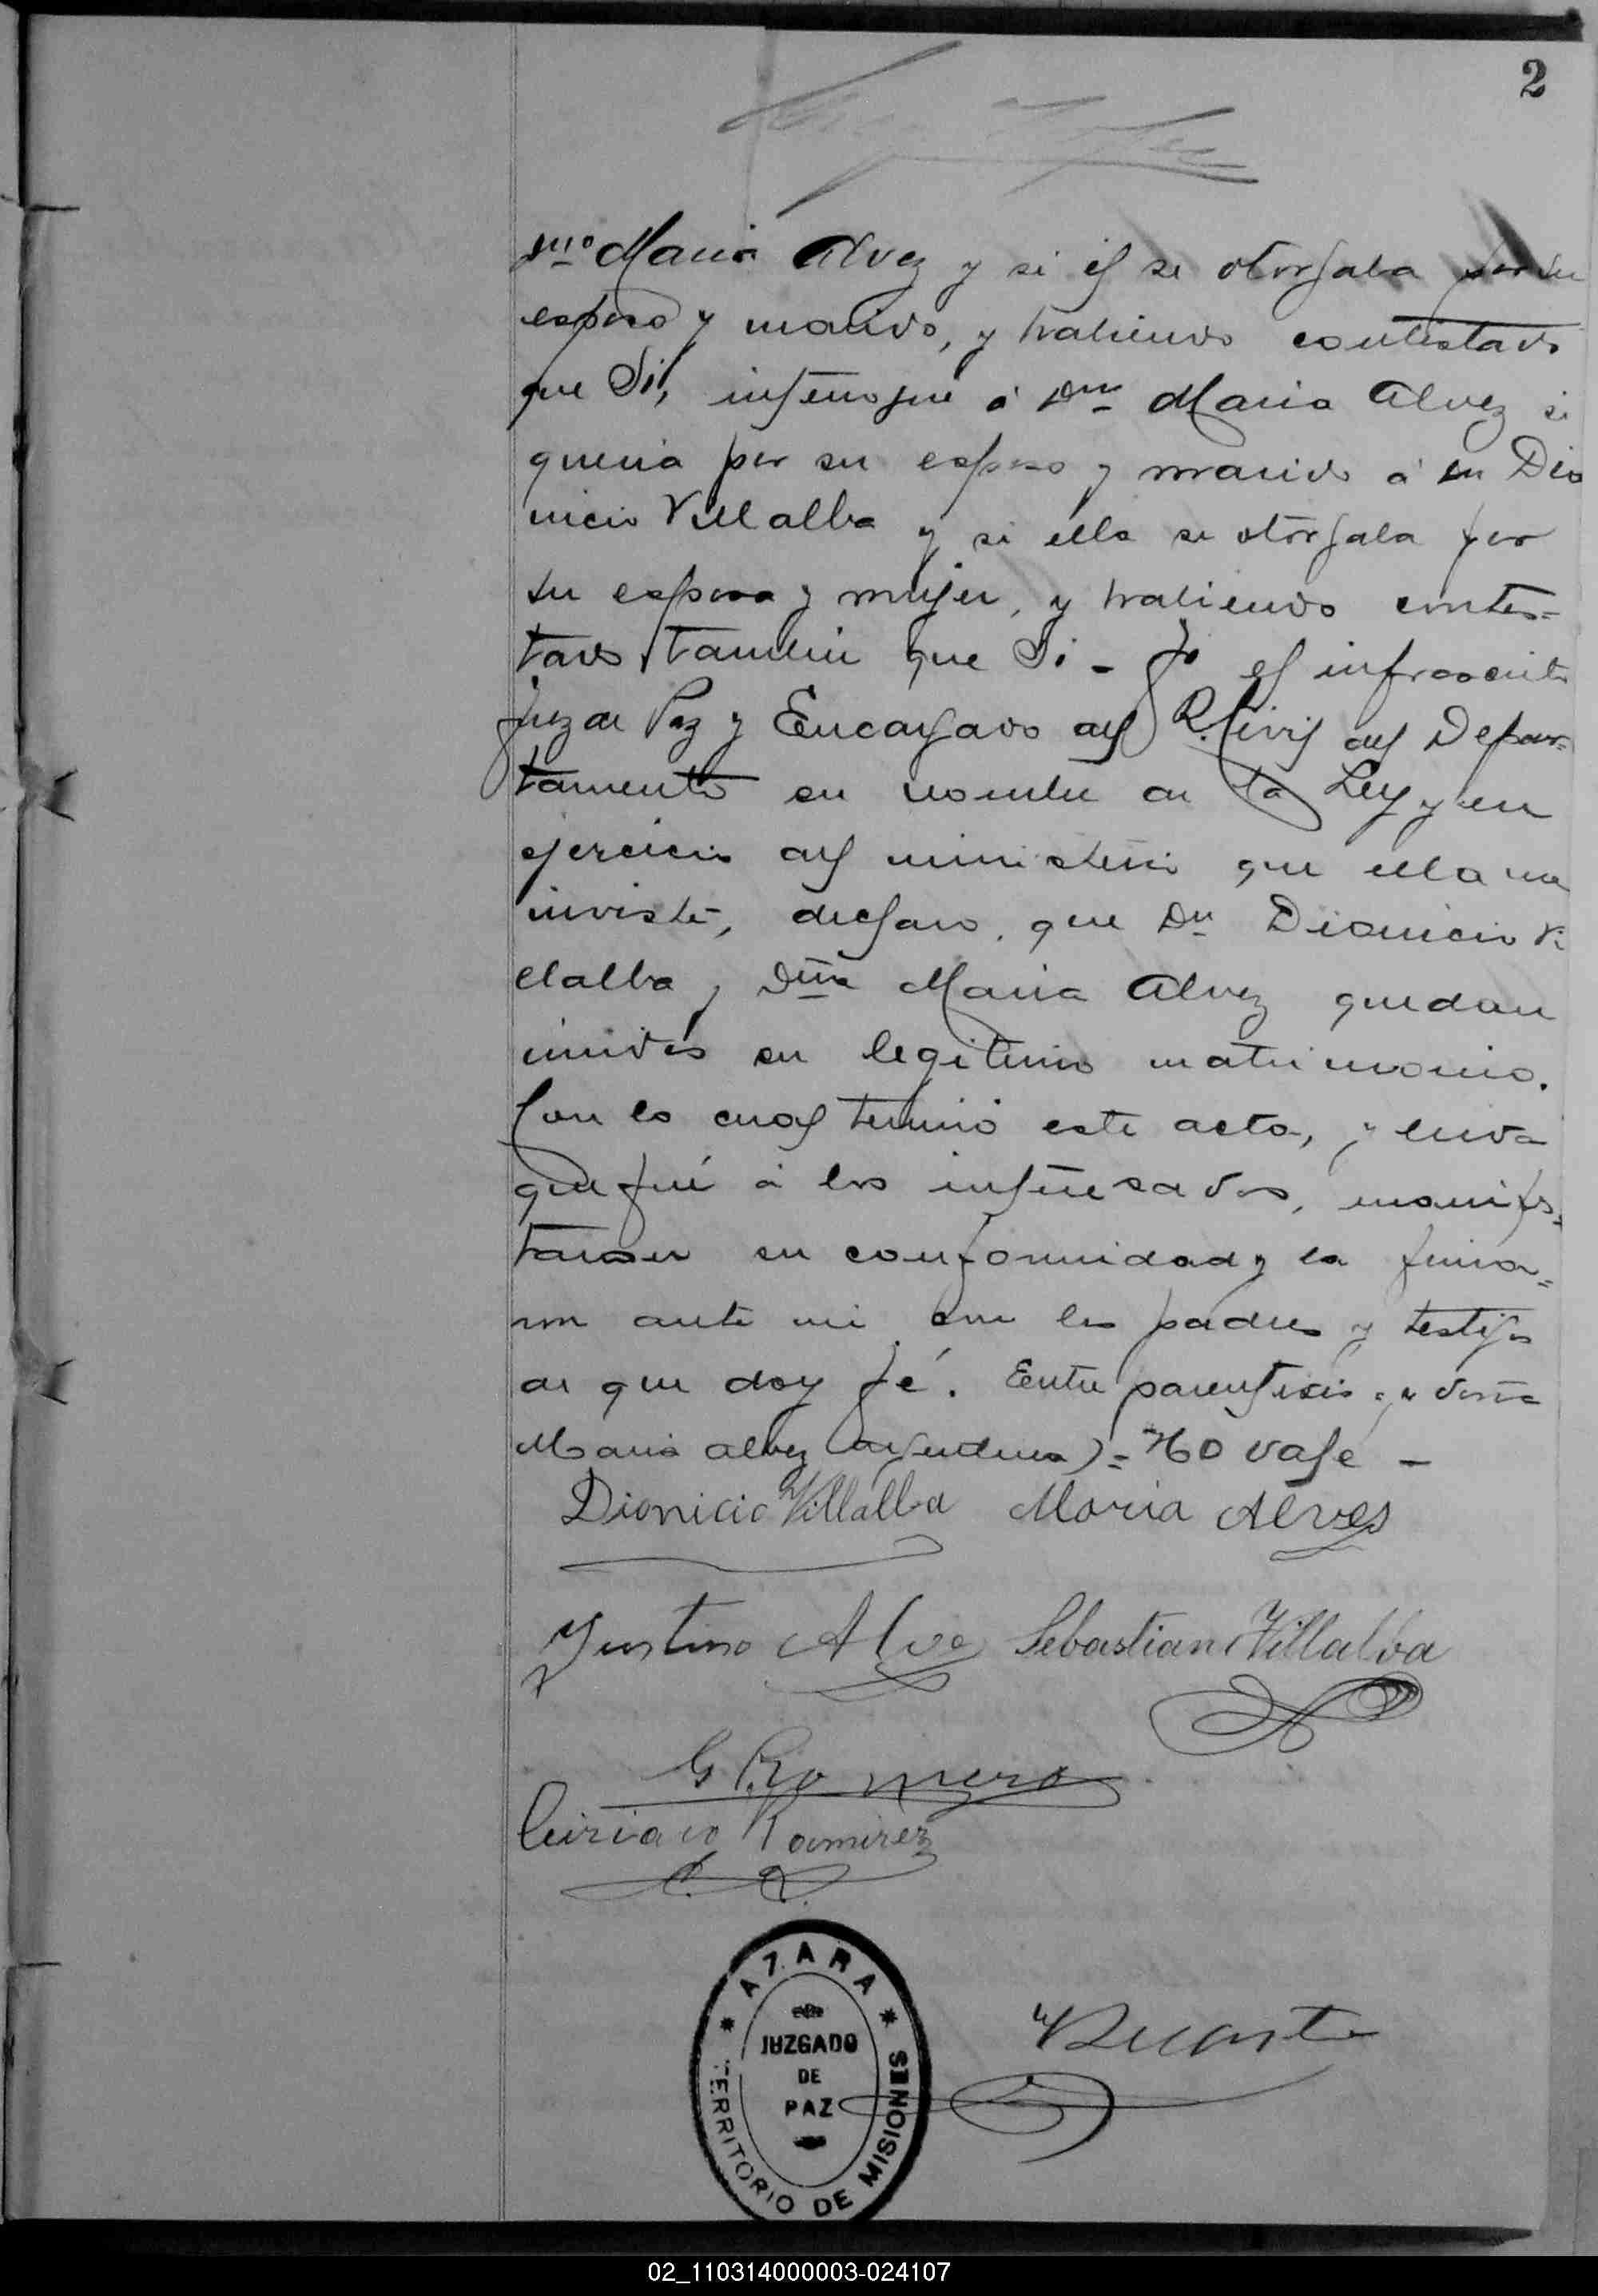 2
Maria Alvez y si él se otorgaba por su
esposo y marido, y habiendo contestado
que Si, interrogué á Dna Maria Alvez si
queria por su esposo y marido á Dn Dio
nicio Villalba y si ella se otorgaba por
su esposa y mujer, y habiendo contes=
tado tambien que Si - Yo el infrascrito
Juez de Paz y Encargado del R. Civil del Depar=
tamento en nombre de la Ley y en
ejercicio del ministerio que ella me
inviste, declaro, que Dn Dionicio Vi
llalba y Dña Maria Alvez quedan
unidos en legitimo matrimonio.
Con lo cual terminó este acto, y leida
que fué á los interesados, manifes=
taron su conformidad y la firma=
ron ante mi con los padres y testigos
de que doy fé. Entre parentesis doña
Maria Alvez = No vale -
Dionicio Villalba Maria Alves
Justino Alve Sebastian Villalba
G Romero
Ciriaco Ramirez
C. R.
Duarte
* AZARA *
JUZGADO
DE
PAZ
TERRITORIO DE MISIONES
02_110314000003-024107